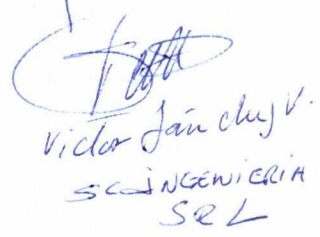 Victor Sánchez V.
SC INGENIERIA
SRL